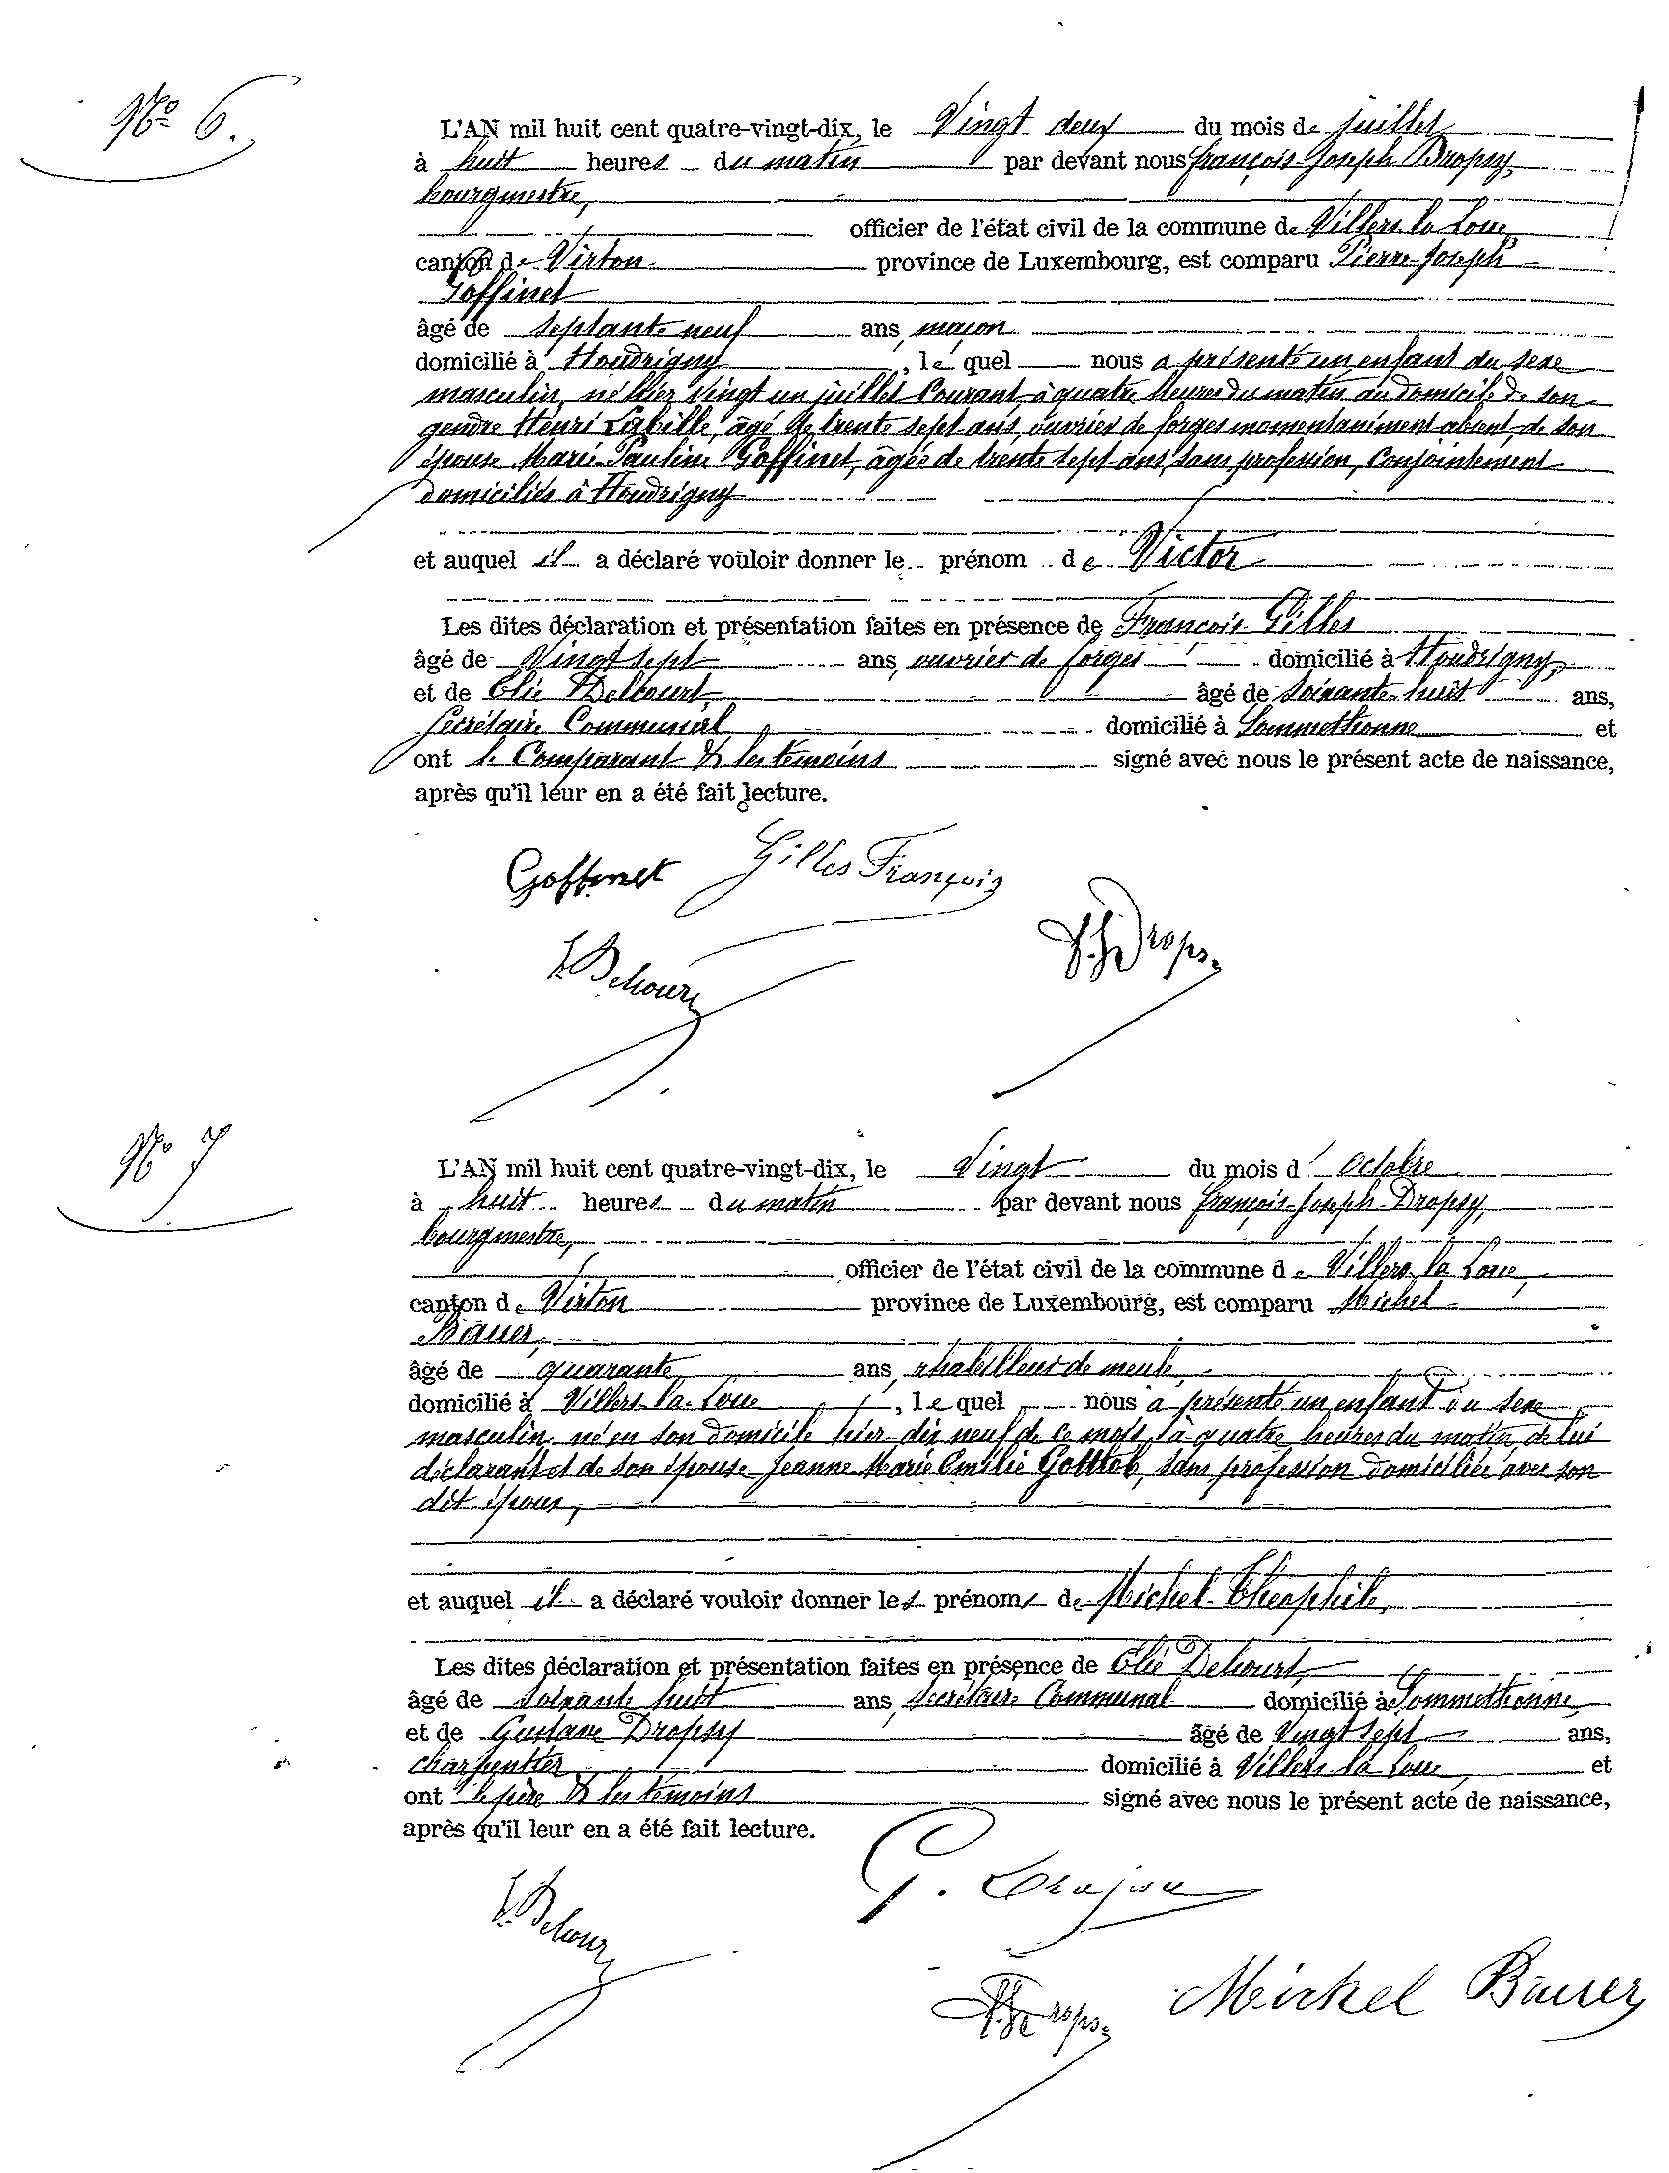 N° 6.
L'AN mil huit cent quatre-vingt-dix, le Vingt deux du mois de juillet
à huit heures du matin par devant nous françois-Joseph Dropsy,
bourgmestre,
officier de l'état civil de la commune de Villers la Loue
canton de Virton province de Luxembourg, est comparu Pierre-Joseph
Goffinet
âgé de septante neuf ans, maçon
domicilié à Houdrigny, le quel nous a présenté un enfant du sexe
masculin, né hier vingt un juillet Courant, à quatre heures du matin au domicile de son
gendre Henri Labille, âgé de trente sept ans, ouvrier de forges momentanément absent, de son
épouse Marie-Pauline Goffinet, âgée de trente sept ans, sans profession, Conjointement
domiciliés à Houdrigny
et auquel il a déclaré vouloir donner le prénom de Victor
Les dites déclaration et présentation faites en présence de François Gilles
âgé de Vingt sept ans, ouvrier de forges domicilié à Houdrigny,
et de Elie Delcourt, âgé de Soixante-huit ans,
Secrétaire Communal domicilié à Sommethonne et
ont le Comparant & les témoins signé avec nous le présent acte de naissance,
après qu'il leur en a été fait lecture.
Goffinet Gilles François
E. Delcourt F. J. Dropsy
N° 7
L'AN mil huit cent quatre-vingt-dix, le Vingt du mois d' Octobre
à huit heures du matin par devant nous françois-Joseph Dropsy,
bourgmestre,
officier de l'état civil de la commune de Villers la Loue,
canton de Virton province de Luxembourg, est comparu Michel
Bauer,
âgé de quarante ans, rhabilleur de meule,
domicilié à Villers-la-Loue, le quel nous a présenté un enfant du sexe
masculin, né en son domicile hier dix neuf de ce mois, à quatre heures du matin, de lui
déclarant et de son épouse Jeanne Marie Emilie Gottlob, sans profession domiciliée avec son
dit époux,
et auquel il a déclaré vouloir donner les prénoms de Michel-Théophile,
Les dites déclaration et présentation faites en présence de Elie Delcourt,
âgé de Soixante huit ans, Secrétaire Communal domicilié à Sommethonne
et de Gustave Dropsy âgé de Vingt sept ans,
charpentier domicilié à Villers la Loue, et
ont le père & les témoins signé avec nous le présent acte de naissance,
après qu'il leur en a été fait lecture.
E. Delcourt G. Dropsy
F. J. Dropsy Michel Bauer